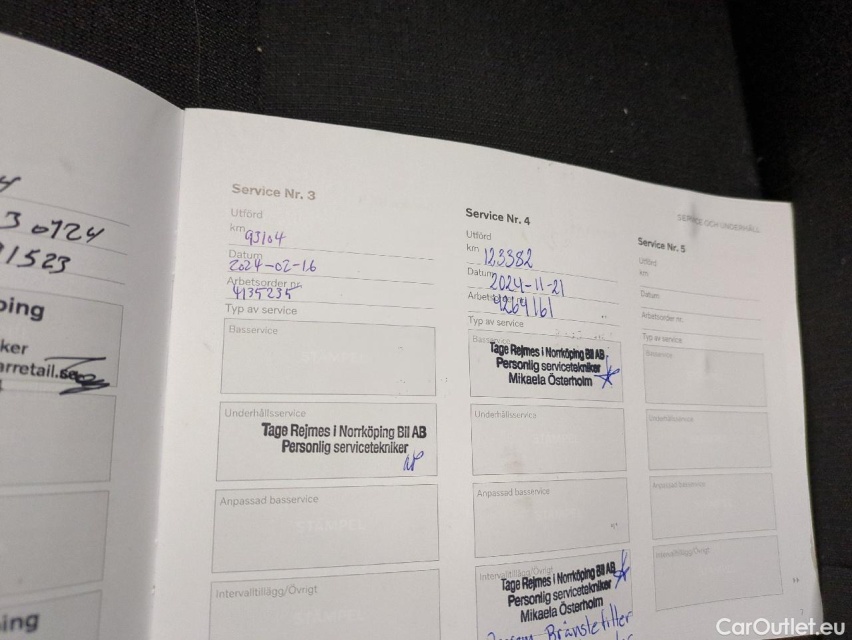 30724
91523
ping
ker
arretail.se
sing
Service Nr. 3
Utförd
km 93104
Datum
2024-02-16
Arbetsorder nr.
4135235
Typ av service
Basservice
Underhållsservice
Tage Rejmes i Norrköping Bil AB
Personlig servicetekniker
Anpassad basservice
STÄMPEL
Intervalltillägg/Övrigt
Service Nr. 4
Utförd
km 123382
Datum
2024-11-21
Arbetsorder nr.
4264161
Typ av service
Basservice
Tage Rejmes i Norrköping Bil AB
Personlig servicetekniker
Mikaela Österholm
Underhållsservice
Anpassad basservice
Intervalltillägg/Övrigt
Tage Rejmes i Norrköping Bil AB
Personlig servicetekniker
Mikaela Österholm
Bränslefilter
SERVICE OCH UNDERHÅLL
Service Nr. 5
Utförd
km
Datum
Arbetsorder nr.
Typ av service
Basservice
Underhållsservice
Anpassad basservice
Intervalltillägg/Övrigt
CarOutlet.eu